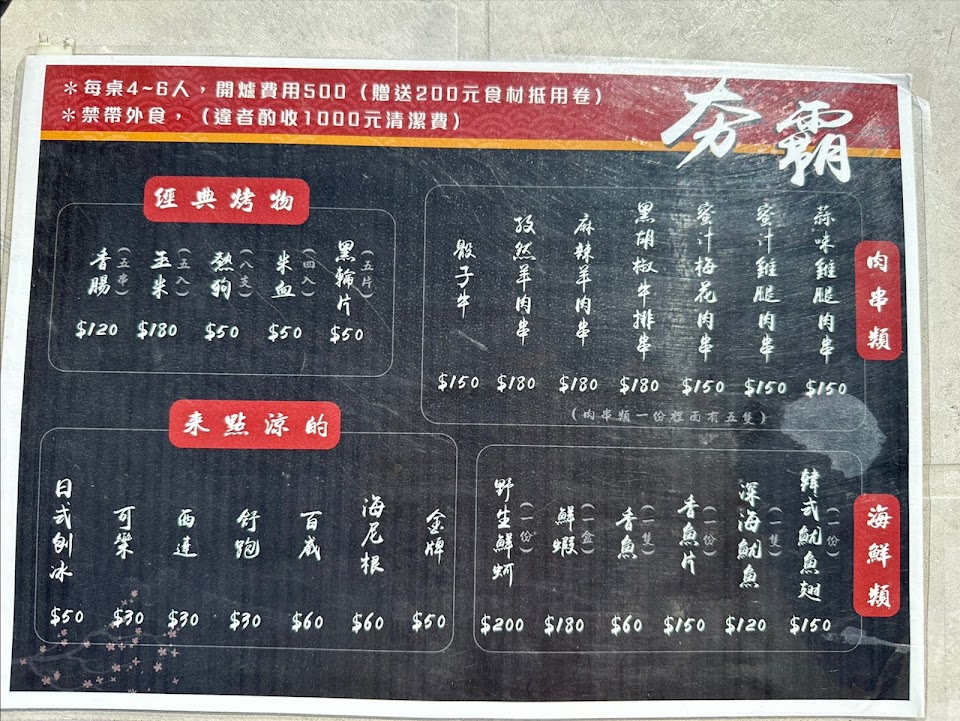 ＊每桌4~6人，開爐費用500（贈送200元食材抵用卷）
＊禁帶外食，（違者酌收1000元清潔費）
夯霸
肉串類
蒜味雞腿肉串 $150
蜜汁雞腿肉串 $150
蜜汁梅花肉串 $150
黑胡椒牛排串 $180
麻辣羊肉串 $180
孜然羊肉串 $180
骰子牛 $150
（肉串類一份裡面有五隻）
經典烤物
黑輪片（五片） $50
米血（四入） $50
熱狗（八支） $50
玉米（五入） $180
香腸（五串） $120
海鮮類
韓式魷魚翅（一份） $150
深海魷魚（一隻） $120
香魚片（一份） $150
香魚（一隻） $60
鮮蝦（一盒） $180
野生鮮蚵（一份） $200
來點涼的
金牌 $50
海尼根 $60
百威 $60
舒跑 $30
西達 $30
可樂 $30
日式刨冰 $50